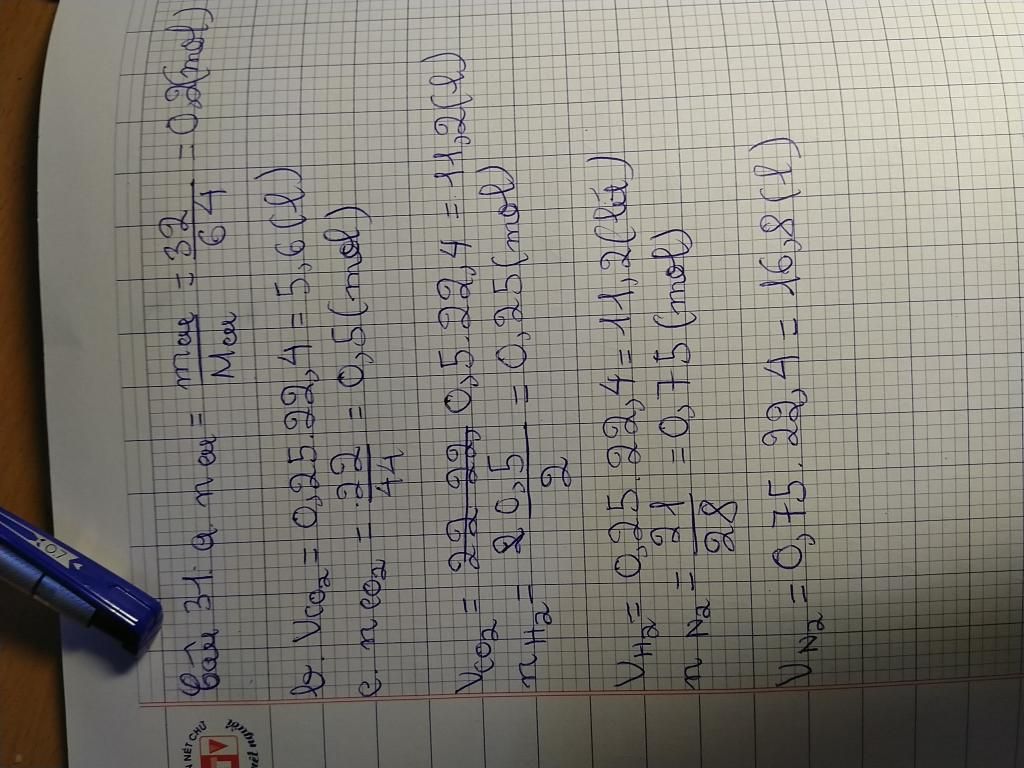 Câu 31. a n Cu = m Cu / M Cu = 32 / 64 = 0,2 (mol)
b. V CO2 = 0,25.22,4 = 5,6 (l)
c. n CO2 = 22 / 44 = 0,5 (mol)
V CO2 = 0,5.22,4 = 11,2 (l)
n H2 = 0,5 / 2 = 0,25 (mol)
V H2 = 0,25.22,4 = 11,2 (lít)
n N2 = 21 / 28 = 0,75 (mol)
V N2 = 0,75.22,4 = 16,8 (l)
NÉT CHỮ
TV
nết người
07